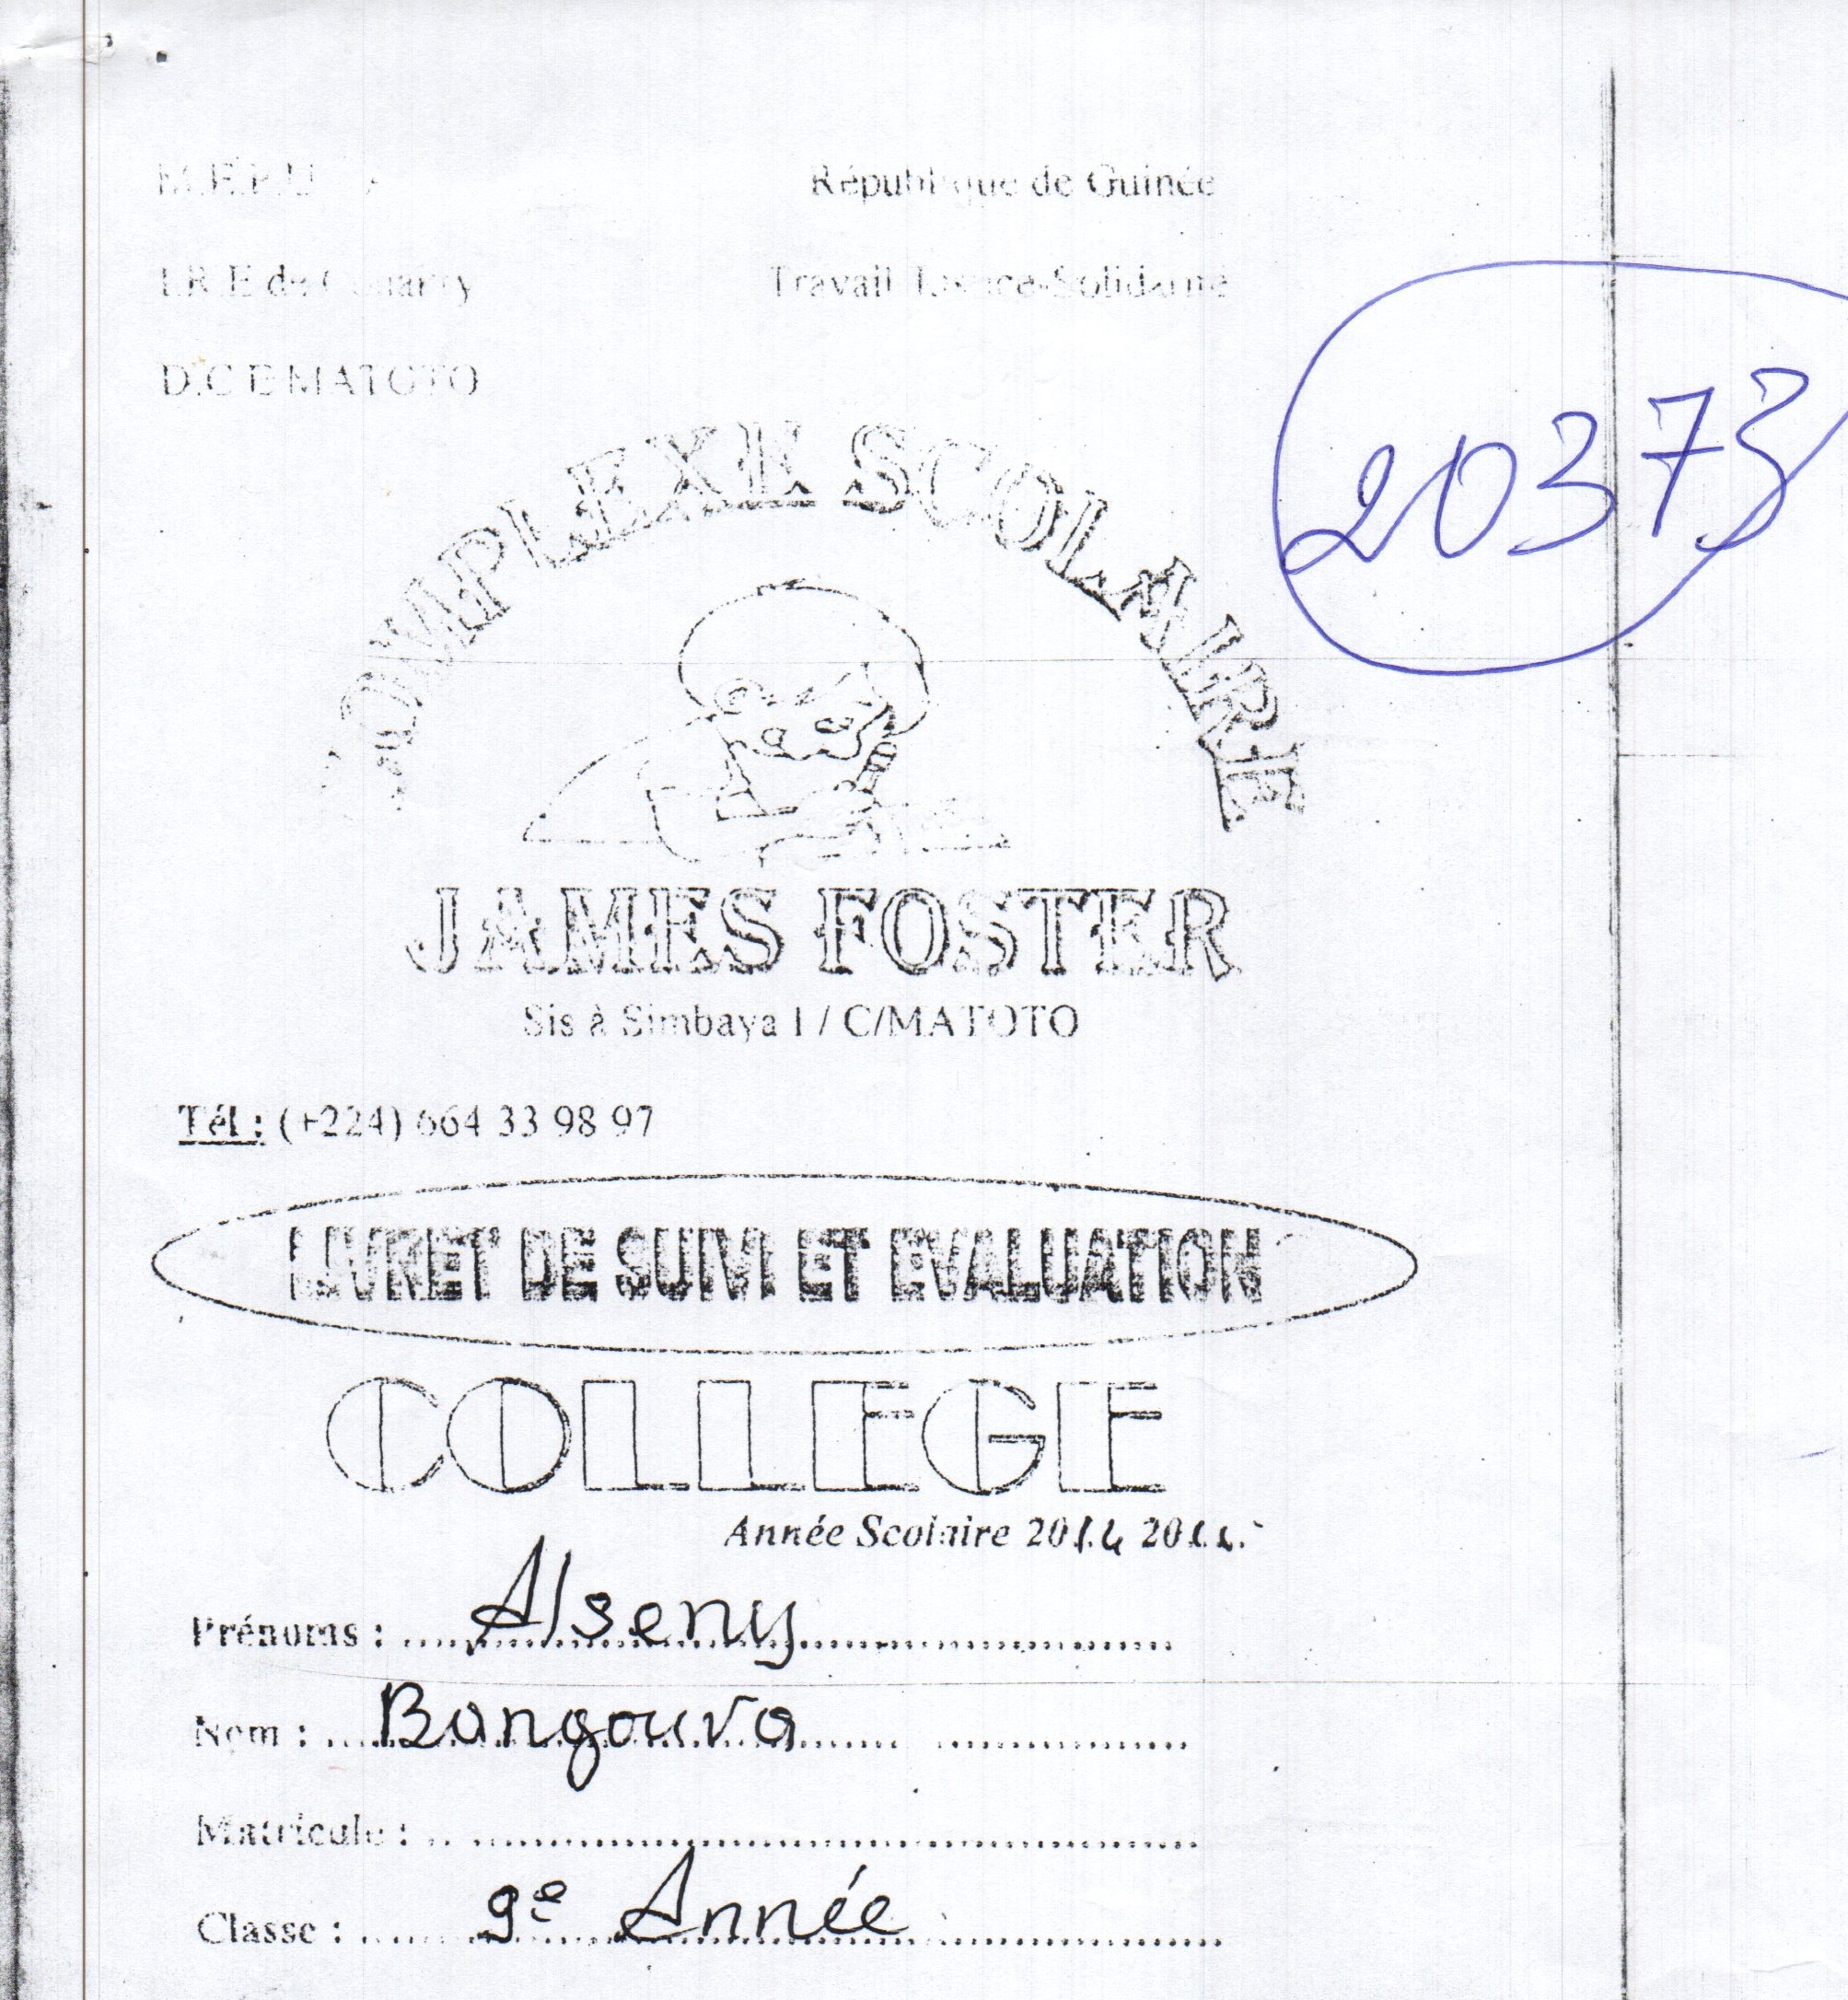 République de Guinée
I.R.E de Conakry
Travail-Justice-Solidarité
D.C.E MATOTO
20373
COMPLEXE SCOLAIRE
JAMES FOSTER
Sis à Simbaya I / C/MATOTO
Tél : (+224) 664 33 98 97
LIVRET DE SUIVI ET EVALUATION
COLLEGE
Année Scolaire 2014 20
Prénoms : Alseny
Nom : Bangoura
Matricule :
Classe : 9e Année